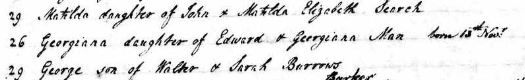 29 Matilda daughter of John & Matilda Elizabeth Search
26 Georgiana daughter of Edward & Georgiana Man born 18th Novr
29 George son of Walter & Sarah Burrows
Barker